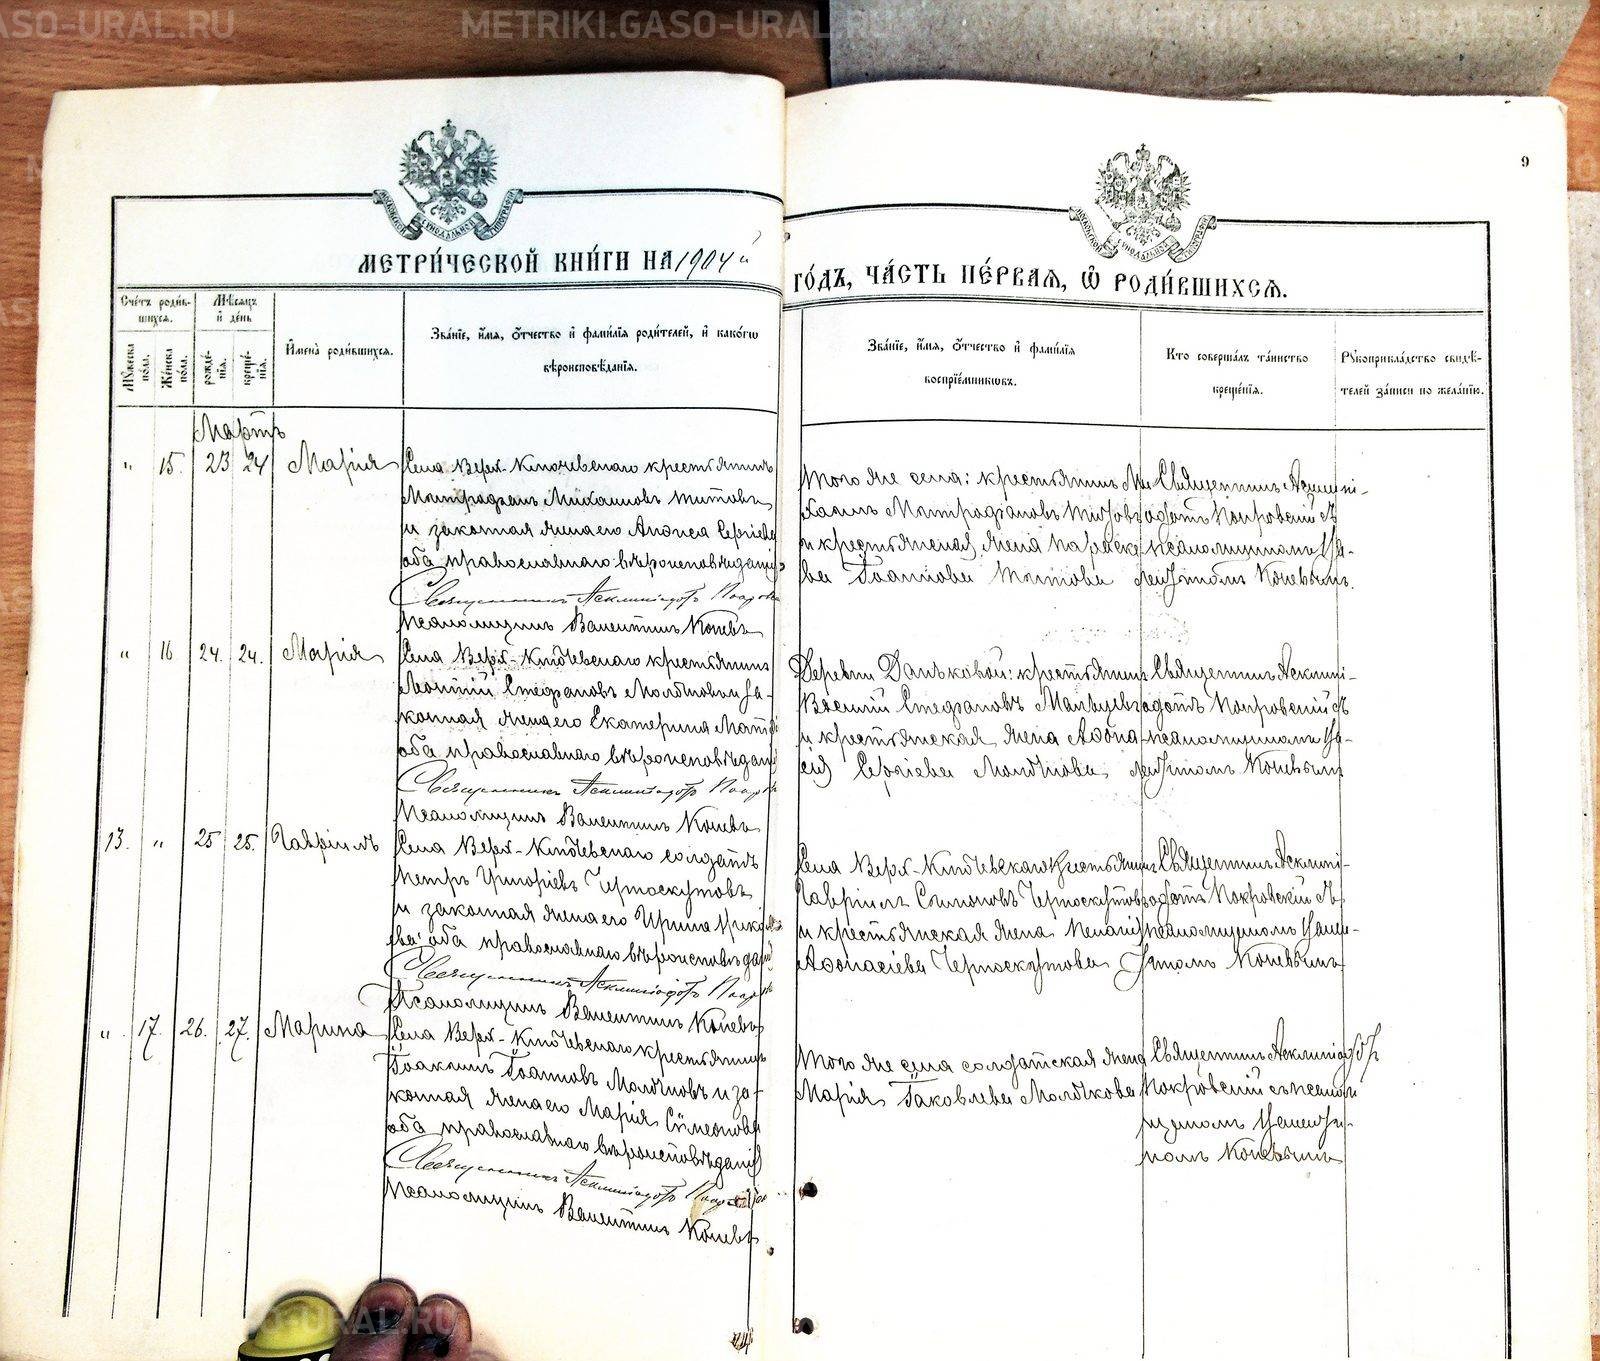 ASO-URAL.RU METRIKI.GASO-URAL.RU METRIKI.GASO-URAL.RU
9
МЕТРИ́ЧЕСКОЙ КНИ́ГИ НА 1904 й
ГО́ДЪ, ЧА́СТЬ ПЕ́РВАЯ, Ѽ РОДИ́ВШИХСЯ.
Сче́тъ роди́в-
шихся.
Мѣсяцъ
и де́нь
Мужеска по́ла.
Же́нска по́ла.
рожде́-
нія.
креще́-
нія.
Имена̀ роди́вшихся.
Зва́ніе, имя, отчество и фами́лія роди́телей, и како́гѡ
вѣроисповѣданія.
Зва́ніе, имя, отчество и фами́лія
воспріе́мниковъ.
Кто соверша́лъ та́инство
креще́нія.
Рукоприкла́дство свидѣ-
телей за́писи по жела́нію.
Мартъ
" 15. 23 24 Марія
Села Верх-Ключевскаго крестьянинъ
Митрофанъ Михаиловъ Титовъ
и законная жена его Сергіева
оба православнаго вѣроисповѣданія
Священникъ Асклипіодотъ Покров
Псаломщикъ Валентинъ Коневъ
Того же села: крестьянинъ Ми-
хаилъ Митрофановъ Титовъ
и крестьянская жена Параске-
ва Іоаннова Титова
Священникъ Асклипі-
одотъ Покровскій съ
псаломщикомъ Ва-
лентиномъ Коневымъ.
" 16 24. 24. Марія
Села Верх-Ключевскаго крестьянинъ
Стефановъ и за-
конная жена его Екатерина
оба православнаго вѣроисповѣданія
Священникъ Асклипіодотъ Покров
Псаломщикъ Валентинъ Коневъ
Деревни крестьянинъ
Василій Стефановъ Мальцевъ
и крестьянская жена Афана-
сія Сергіева
Священникъ Асклипі-
одотъ Покровскій съ
псаломщикомъ Ва-
лентиномъ Коневымъ
13. " 25 25. Гавріилъ
Села Верх-Ключевскаго солдатъ
Петръ Григоріевъ Черноскутовъ
и законная жена его Ирина
ева оба православнаго вѣроисповѣданія
Священникъ Асклипіодотъ Покров
Псаломщикъ Валентинъ Коневъ
Села Верх-Ключевскаго крестьянинъ
Гавріилъ Симоновъ Черноскутовъ
и крестьянская жена Пелагія
Афонасіева Черноскутова
Священникъ Асклипі-
одотъ Покровскій съ
псаломщикомъ Вален-
тиномъ Коневымъ
" 17. 26. 27. Марина
Села Верх-Ключевскаго крестьянинъ
Іоакимъ Іоанновъ и за-
конная жена его Марія Симеонова
оба православнаго вѣроисповѣданія
Священникъ Асклипіодотъ Покров
Псаломщикъ Валентинъ Коневъ
Того же села солдатская жена
Марія Іаковлева
Священникъ Асклипіодотъ
Покровскій съ псалом-
щикомъ Валенти-
номъ Коневымъ
GASO-URAL.RU